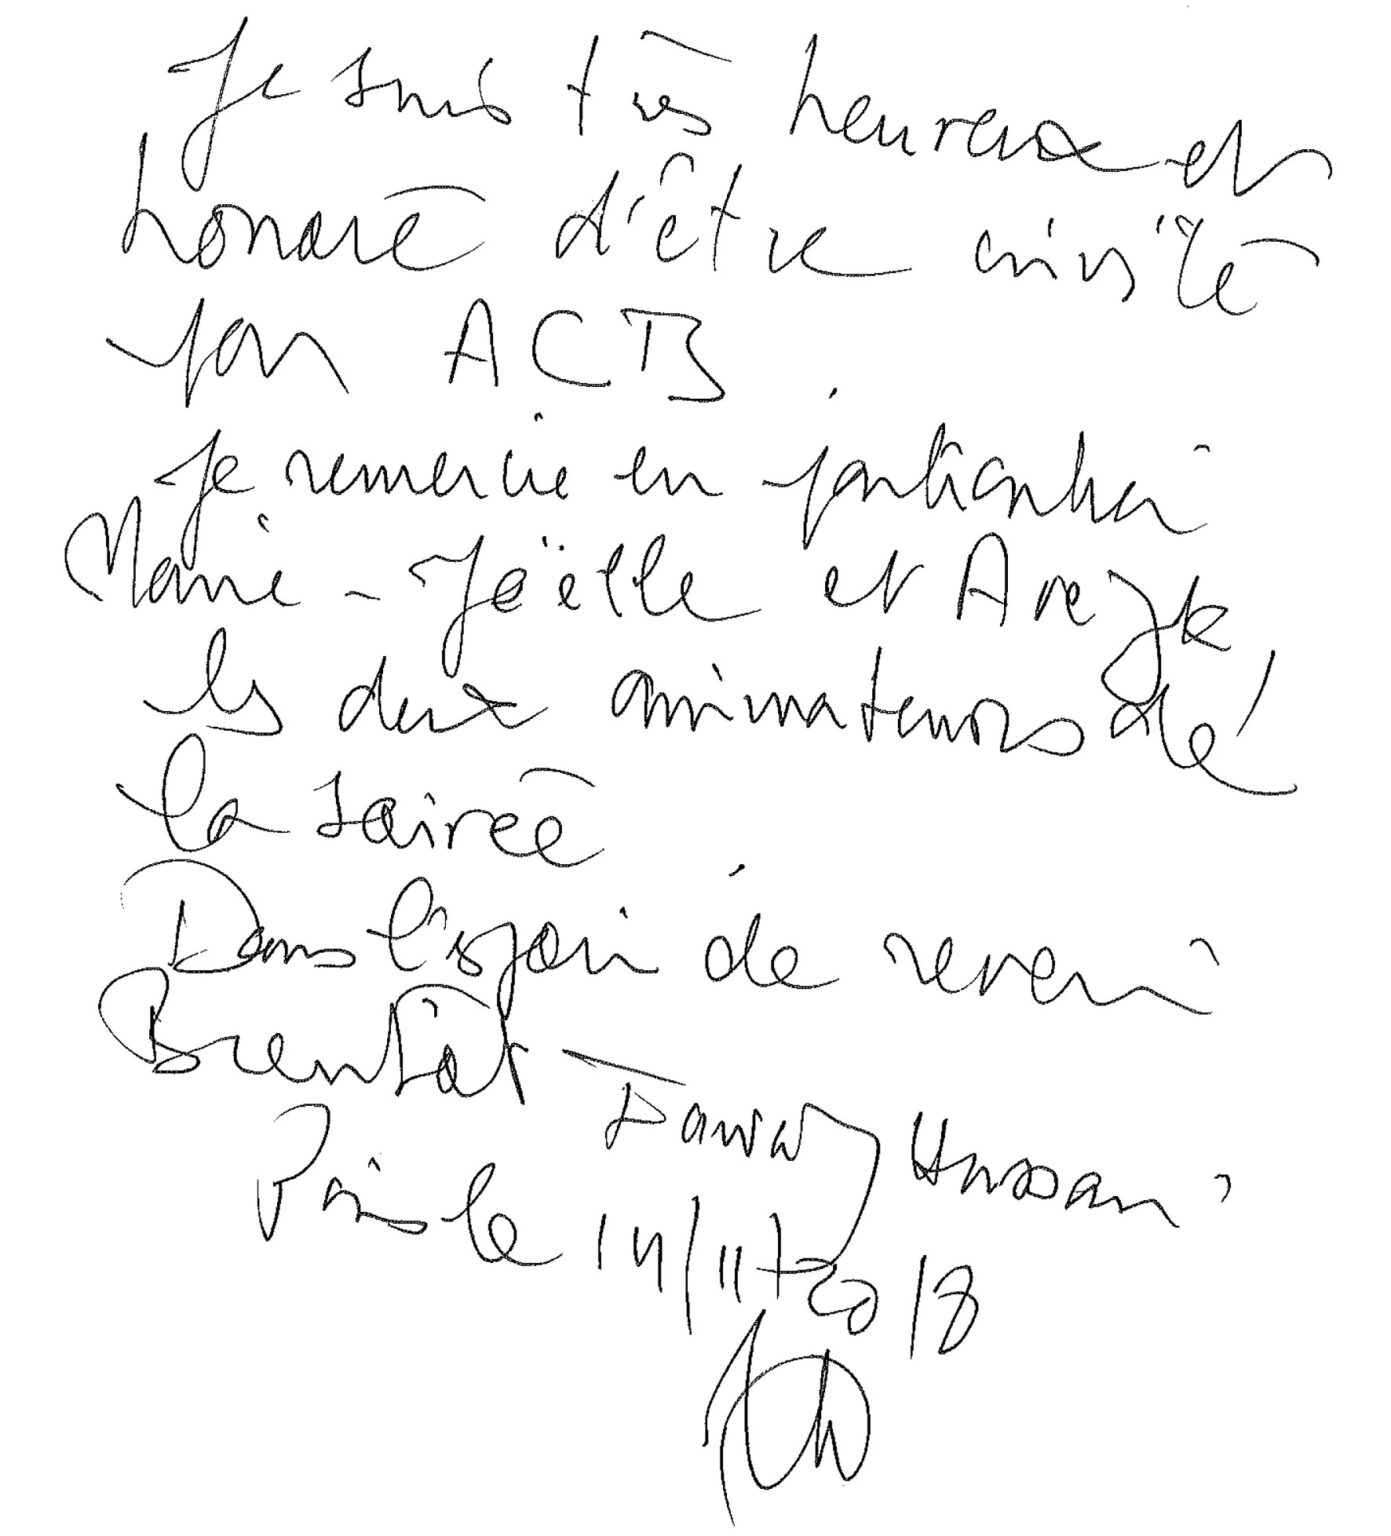 Je suis très heureux et
honoré d'être invité
par ACTB.
Je remercie en particulier
Marie-Joëlle et Arezk
les deux animateurs de
la soirée.
Dans l'espoir de revenir
Bientôt
Hassani
Paris le 14/11/2018